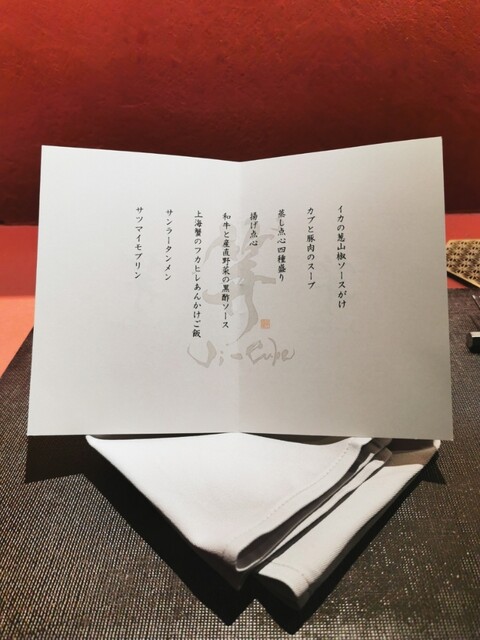 イカの葱山椒ソースがけ
カブと豚肉のスープ
蒸し点心四種盛り
揚げ点心
和牛と産直野菜の黒酢ソース
上海蟹のフカヒレあんかけご飯
サンラータンメン
サツマイモプリン
Ji-Cube